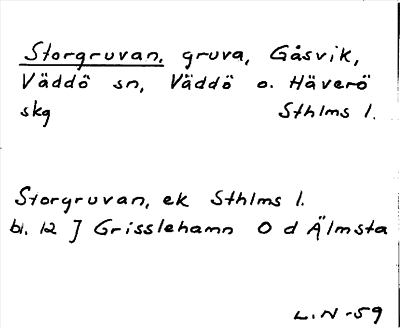 Storgruvan, gruva, Gåsvik,
Väddö sn, Väddö o. Häverö
skg Sthlms l.
Storgruvan, ek Sthlms l.
bl. 12 J Grisslehamn O d Älmsta
L.N -59